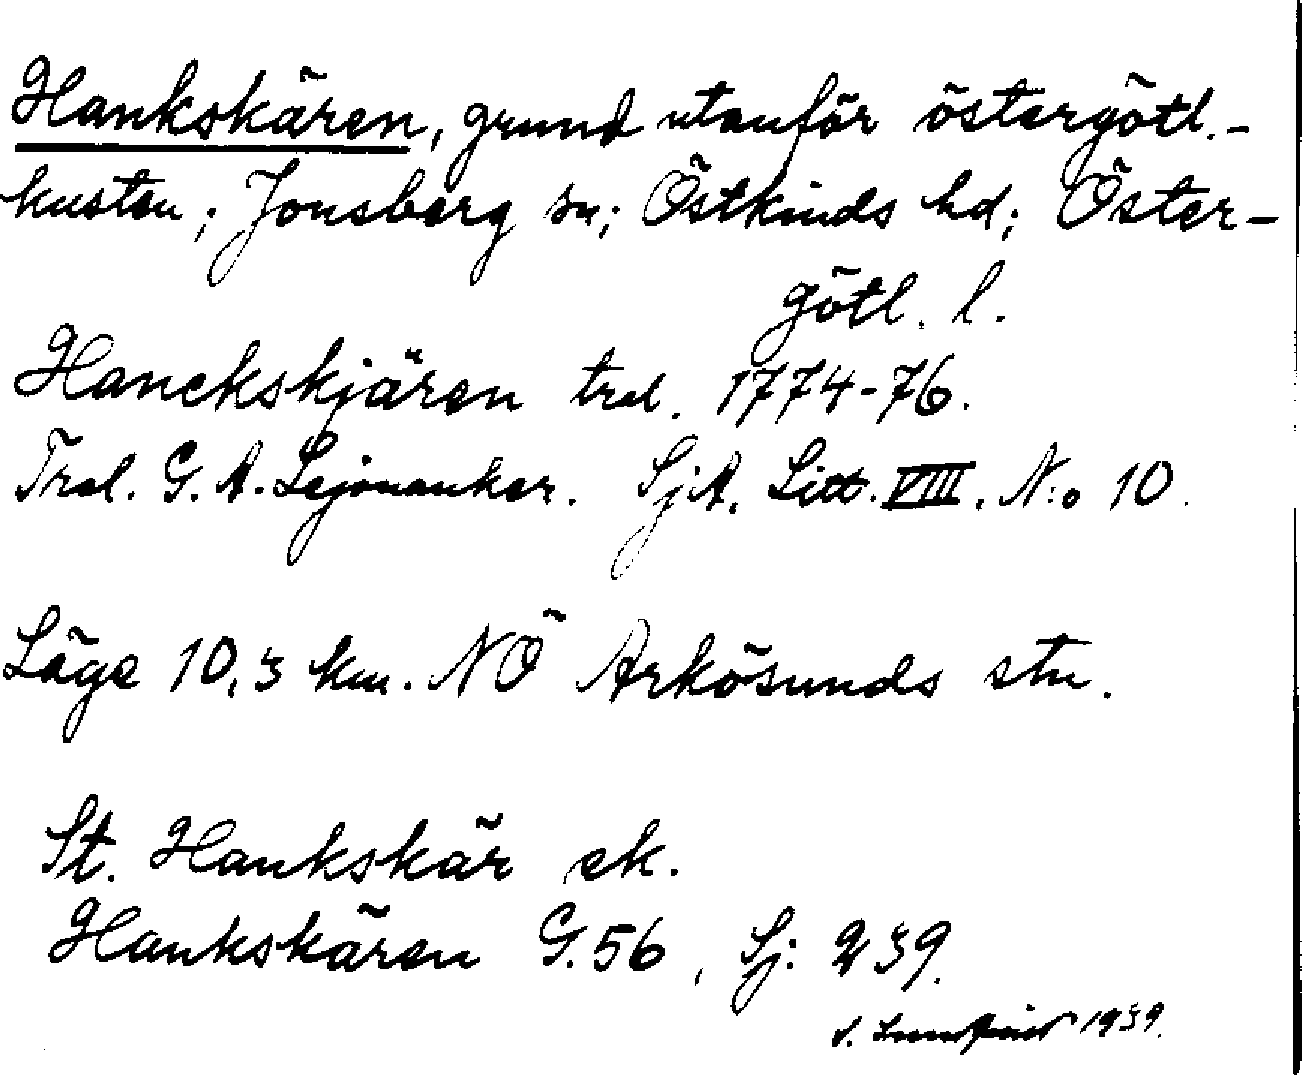 Hankskären, grund utanför östergötl.-
kusten; Jonsberg sn; Östkinds hd; Öster-
götl. l.
Hanckskjären trol. 1774-76.
Trol. G. A. Lejonanker. SjA. Litt. VIII. N:o 10.
Läge 10,3 km. NÖ Arkösunds stn.
St. Hankskär ek.
Hankskären G. 56, Sj: 239.
1939.